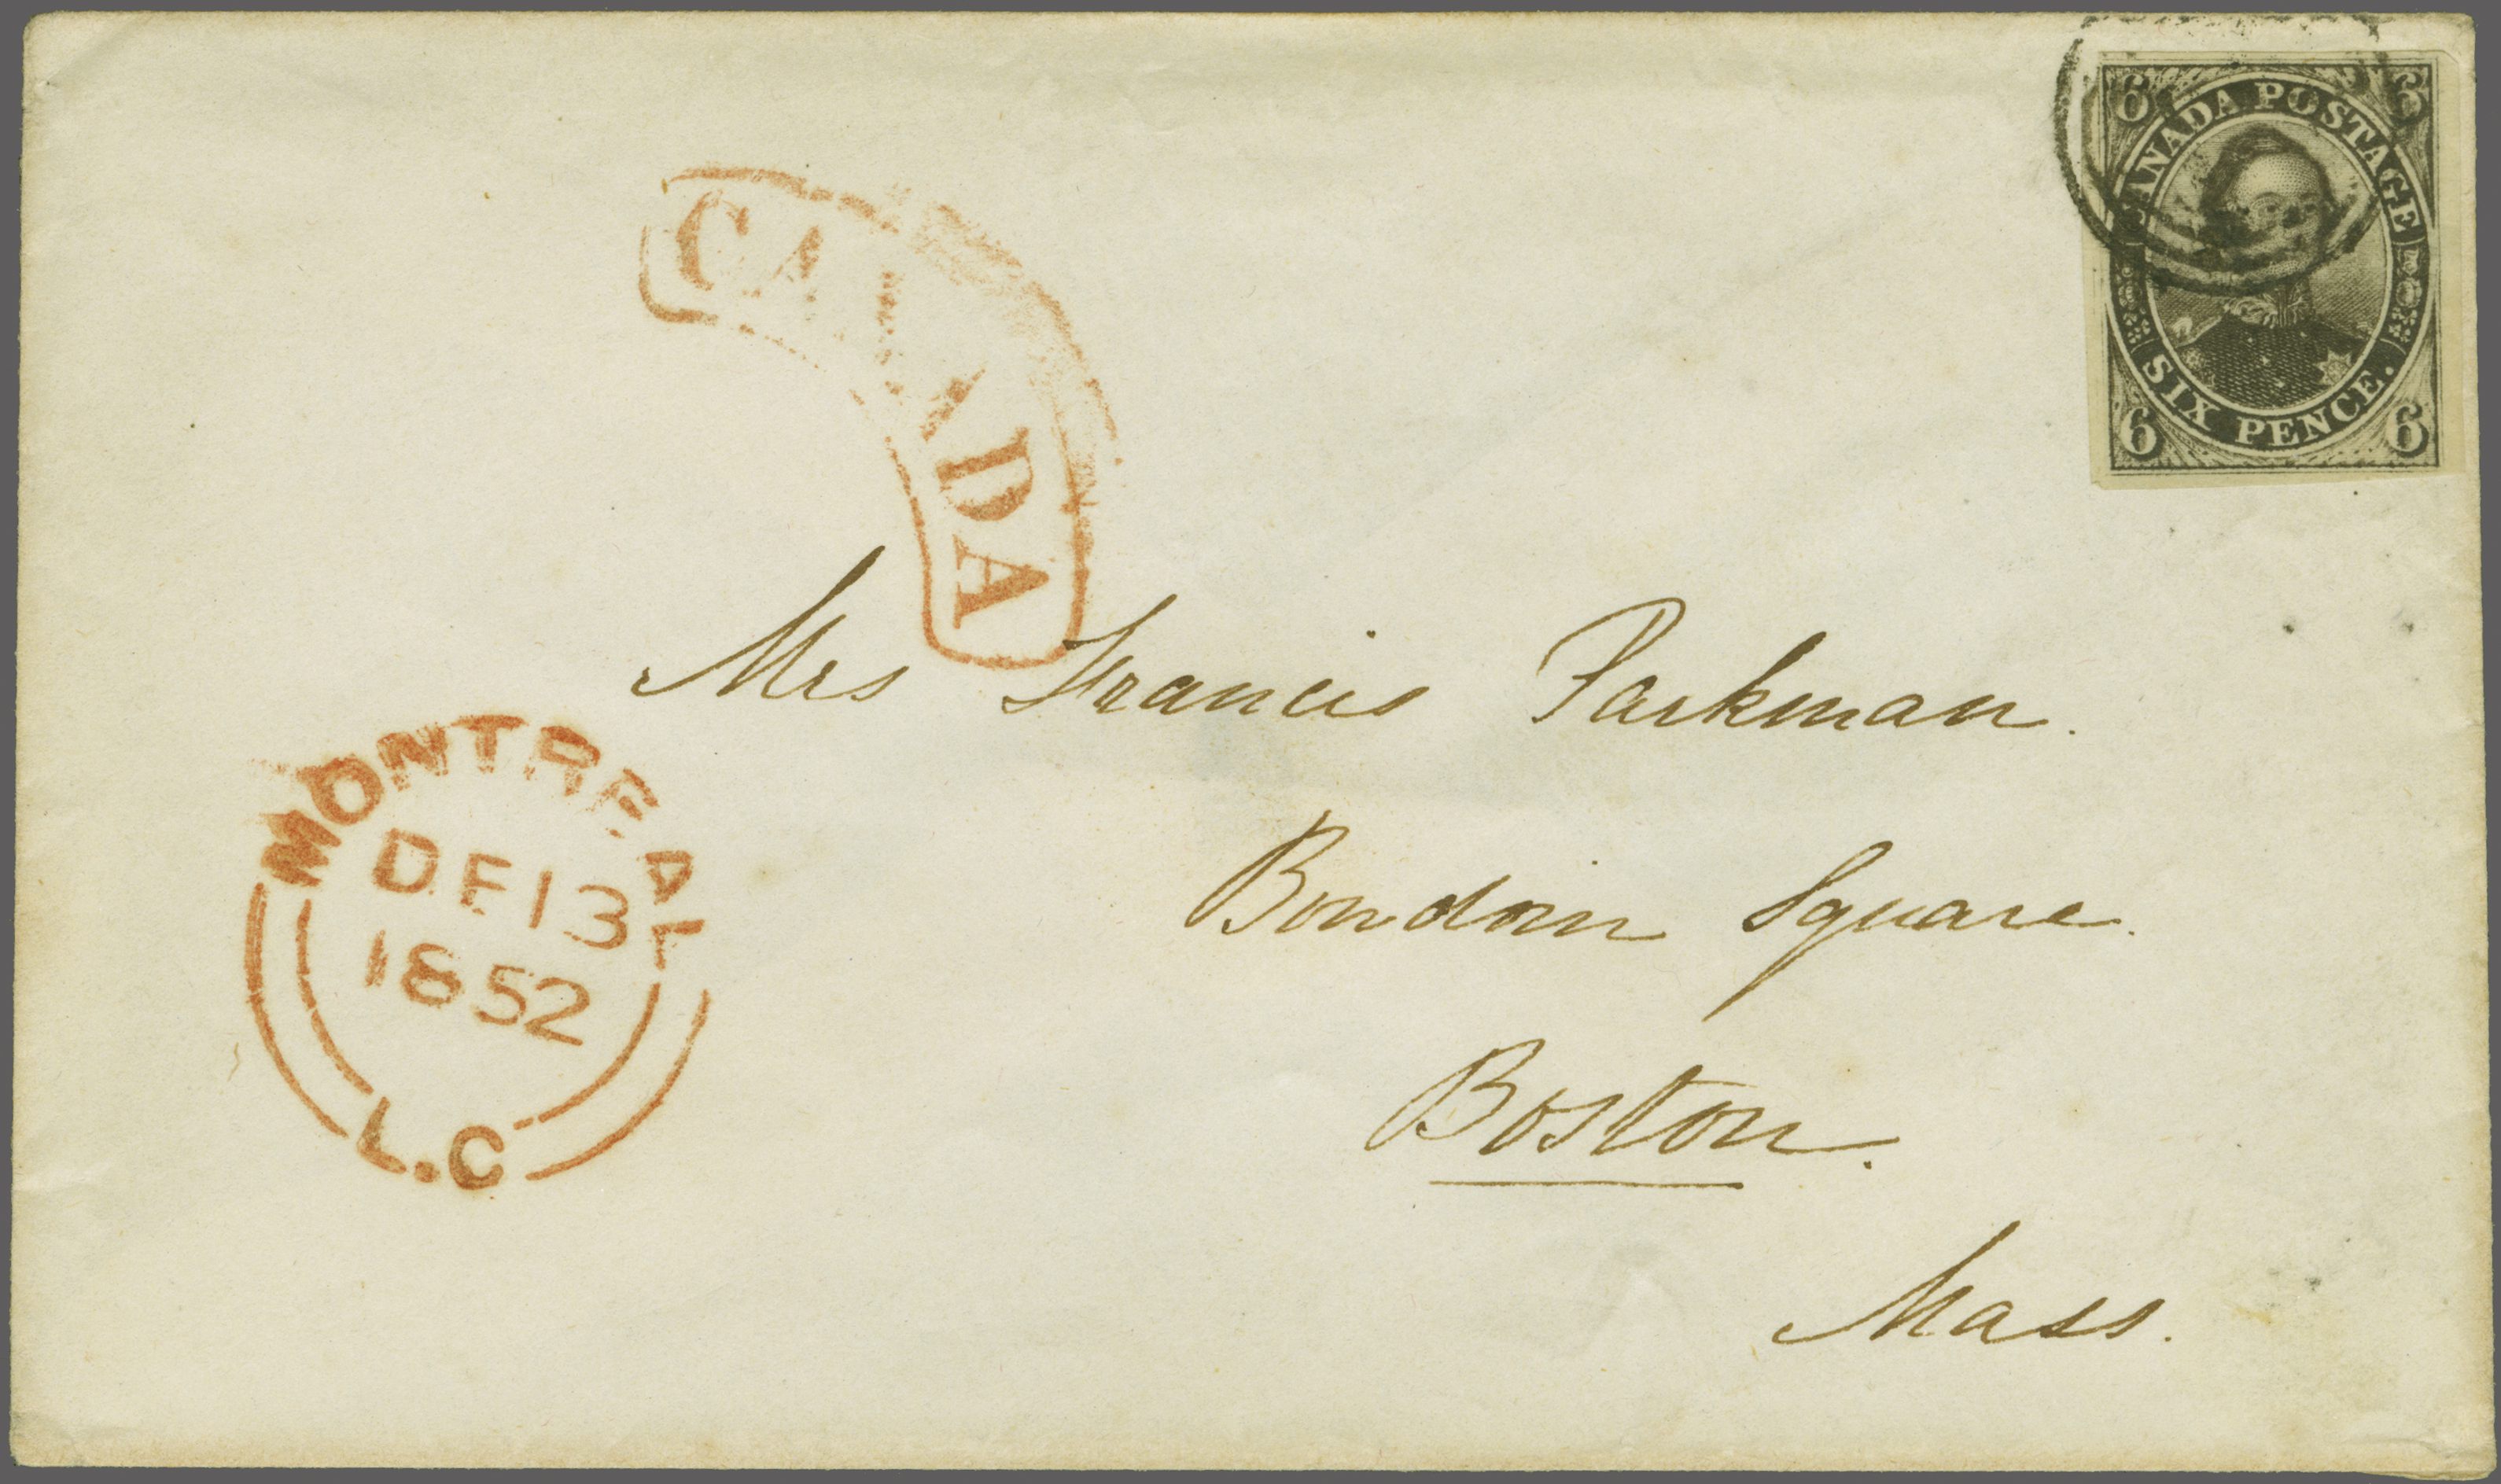 6 6
CANADA POSTAGE
SIX PENCE.
6 6
CANADA
Mrs Francis Parkman.
Bowdoin Square.
Boston.
Mass.
MONTREAL
DE 13
1852
L.C